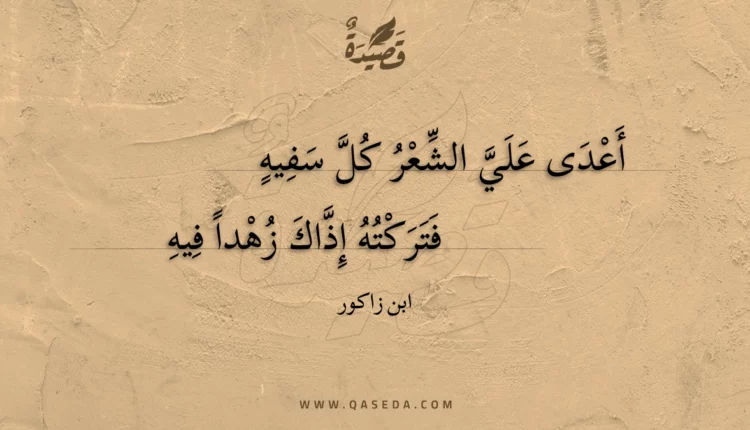 قَصِيْدَةٌ
أَعْدَى عَلَيَّ الشِّعْرُ كُلَّ سَفِيهٍ
فَتَرَكْتُهُ إِذَّاكَ زُهْداً فِيهِ
ابن زاكور
WWW.QASEDA.COM